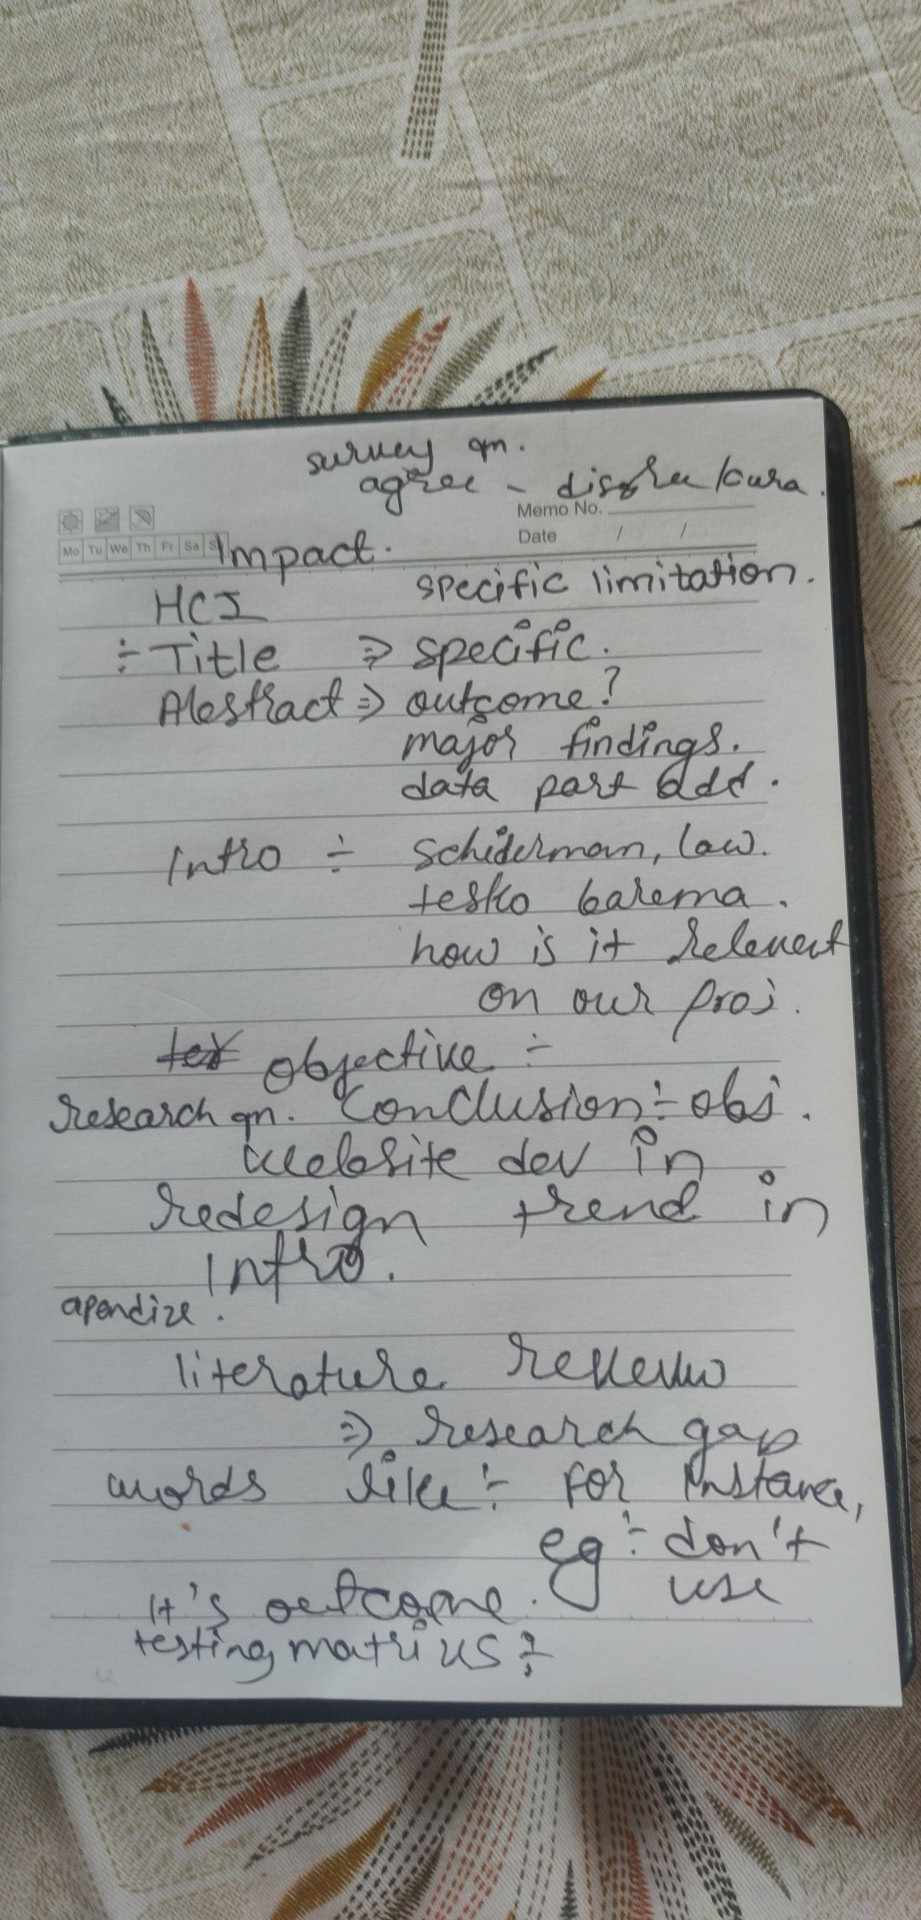 survey qn.
agree - disgree / cura.
Memo No.
Mo Tu We Th Fr Sa S
Date / /
Impact.
specific limitation.
HCI
÷ Title ⇒ specific.
Abstract ⇒ outcome?
major findings.
data part add.
Intro ÷ schiderman, law.
tesko barema.
how is it relevent
on our proj.
objective ÷
research qn. Conclusion ÷ obj.
website dev in
redesign trend in
intro.
apendize.
literature review
⇒ research gap
words like ÷ for instance,
eg ÷ don't
use
It's outcome.
testing matrius ÷